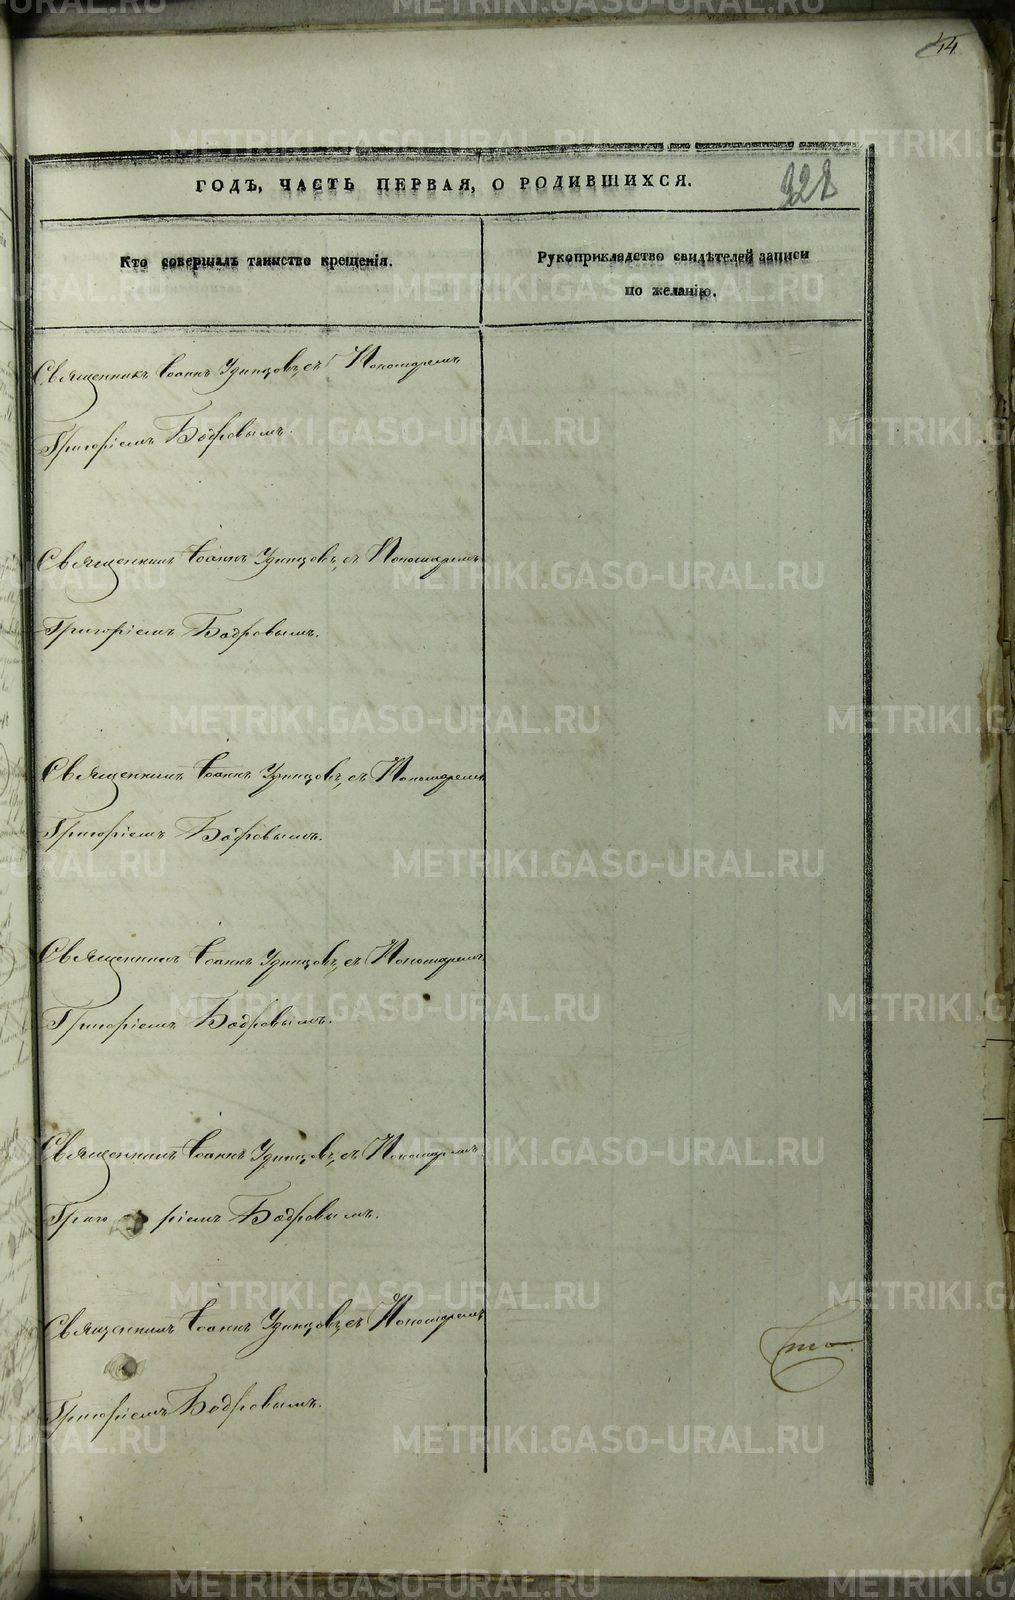 44
328
ГОДЪ, ЧАСТЬ ПЕРВАЯ, О РОДИВШИХСЯ.
Кто совершалъ таинство крещенія.
Рукоприкладство свидѣтелей записи
по желанію.
Священникъ Іоаннъ Удинцовъ, съ Пономаремъ
Григоріемъ Бобровымъ.
Священникъ Іоаннъ Удинцовъ, съ Пономаремъ
Григоріемъ Бобровымъ.
Священникъ Іоаннъ Удинцовъ, съ Пономаремъ
Григоріемъ Бобровымъ.
Священникъ Іоаннъ Удинцовъ, съ Пономаремъ
Григоріемъ Бобровымъ.
Священникъ Іоаннъ Удинцовъ, съ Пономаремъ
Григоріемъ Бобровымъ.
Священникъ Іоаннъ Удинцовъ, съ Пономаремъ
Григоріемъ Бобровымъ.
METRIKI.GASO-URAL.RU